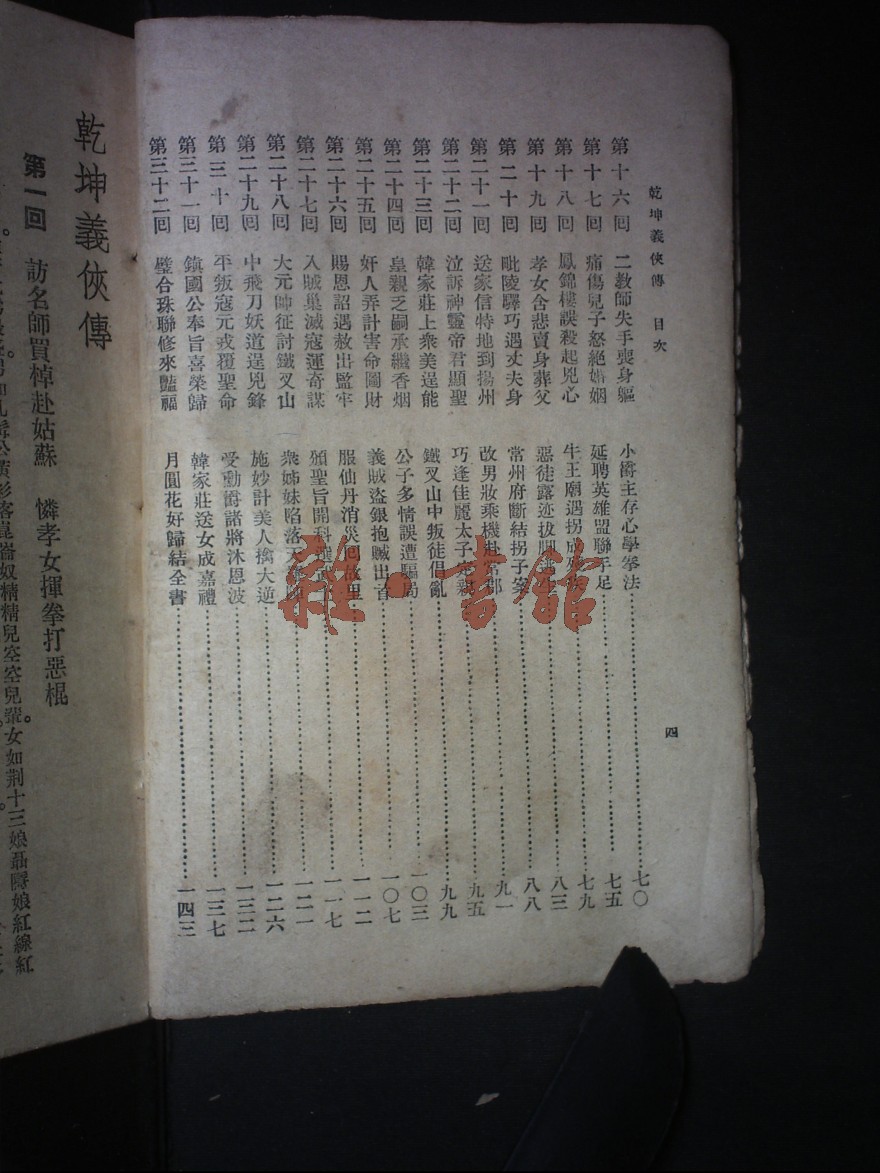 乾坤義俠傳 目次
四
第十六回 二教師失手喪身軀 小爵主存心學拳法 七〇
第十七回 痛傷兒子怒絕婚姻 延聘英雄盟聯手足 七五
第十八回 鳳錦樓誤殺起兇心 牛王廟遇拐成 七九
第十九回 孝女含悲賣身葬父 惡徒露迹拔 八三
第二十回 毗陵驛巧遇丈夫身 常州府斷結拐子案 八八
第二十一回 送家信特地到揚州 改男妝乘機赴 九一
第二十二回 泣訴神靈帝君顯聖 巧逢佳麗太子 親 九五
第二十三回 韓家莊上衆美逞能 鐵叉山中叛徒倡亂 九九
第二十四回 皇親乏嗣承繼香烟 公子多情誤遭騙局 一〇三
第二十五回 奸人弄計害命圖財 義賊盜銀抱贓出首 一〇七
第二十六回 賜恩詔遇赦出監牢 服仙丹消災 一一二
第二十七回 入賊巢滅寇運奇謀 頒聖旨開科 一一七
第二十八回 大元帥征討鐵叉山 衆姊妹陷落 一二一
第二十九回 中飛刀妖道逞兇鋒 施妙計美人擒大逆 一二六
第三十回 平叛寇元戎覆聖命 受勳爵諸將沐恩波 一三二
第三十一回 鎮國公奉旨喜榮歸 韓家莊送女成嘉禮 一三七
第三十二回 璧合珠聯修來豔福 月圓花好歸結全書 一四三
乾坤義俠傳
第一回 訪名師買棹赴姑蘇 憐孝女揮拳打惡棍
崑崙奴精精兒空空兒輩。女如荆十三娘聶隱娘紅線紅
雜·書館